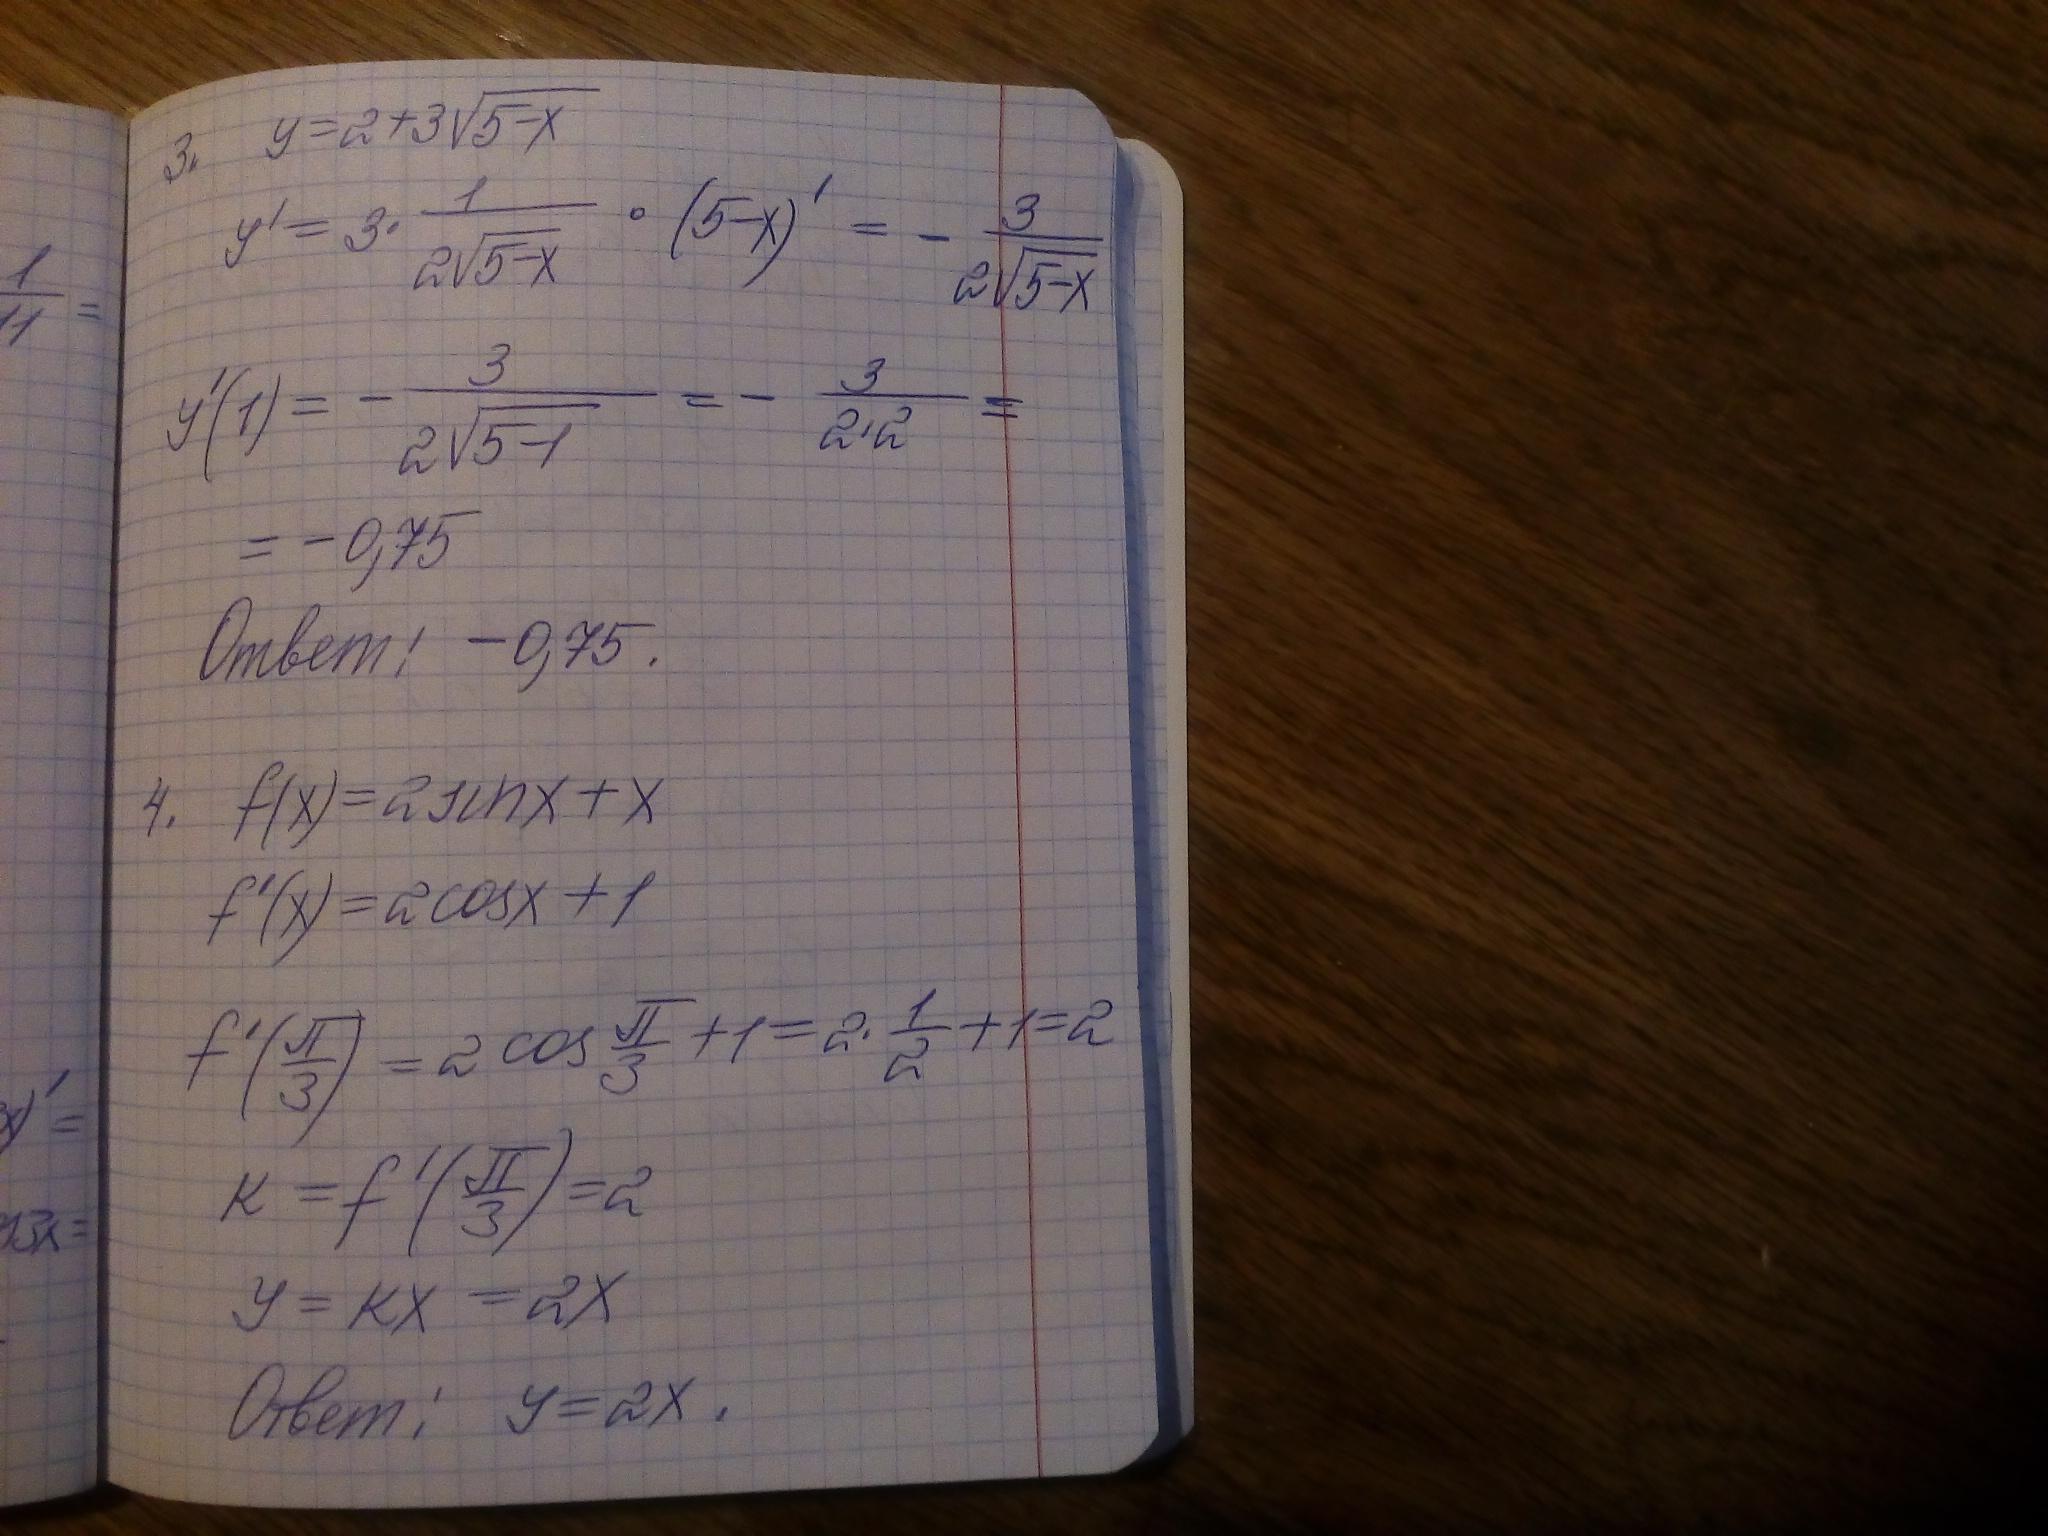 3. y=2+3√(5-x)
y' = 3·1/(2√(5-x)) · (5-x)' = - 3/(2√(5-x))
y'(1) = - 3/(2√(5-1)) = - 3/(2·2) =
= -0,75
Ответ: -0,75.
4. f(x)=2sinx+x
f'(x)=2cosx+1
f'(π/3) = 2 cos π/3 +1=2·1/2+1=2
к = f'(π/3)=2
y = кх = 2х
Ответ: y=2x.
1/11 =
x)' =
3x=